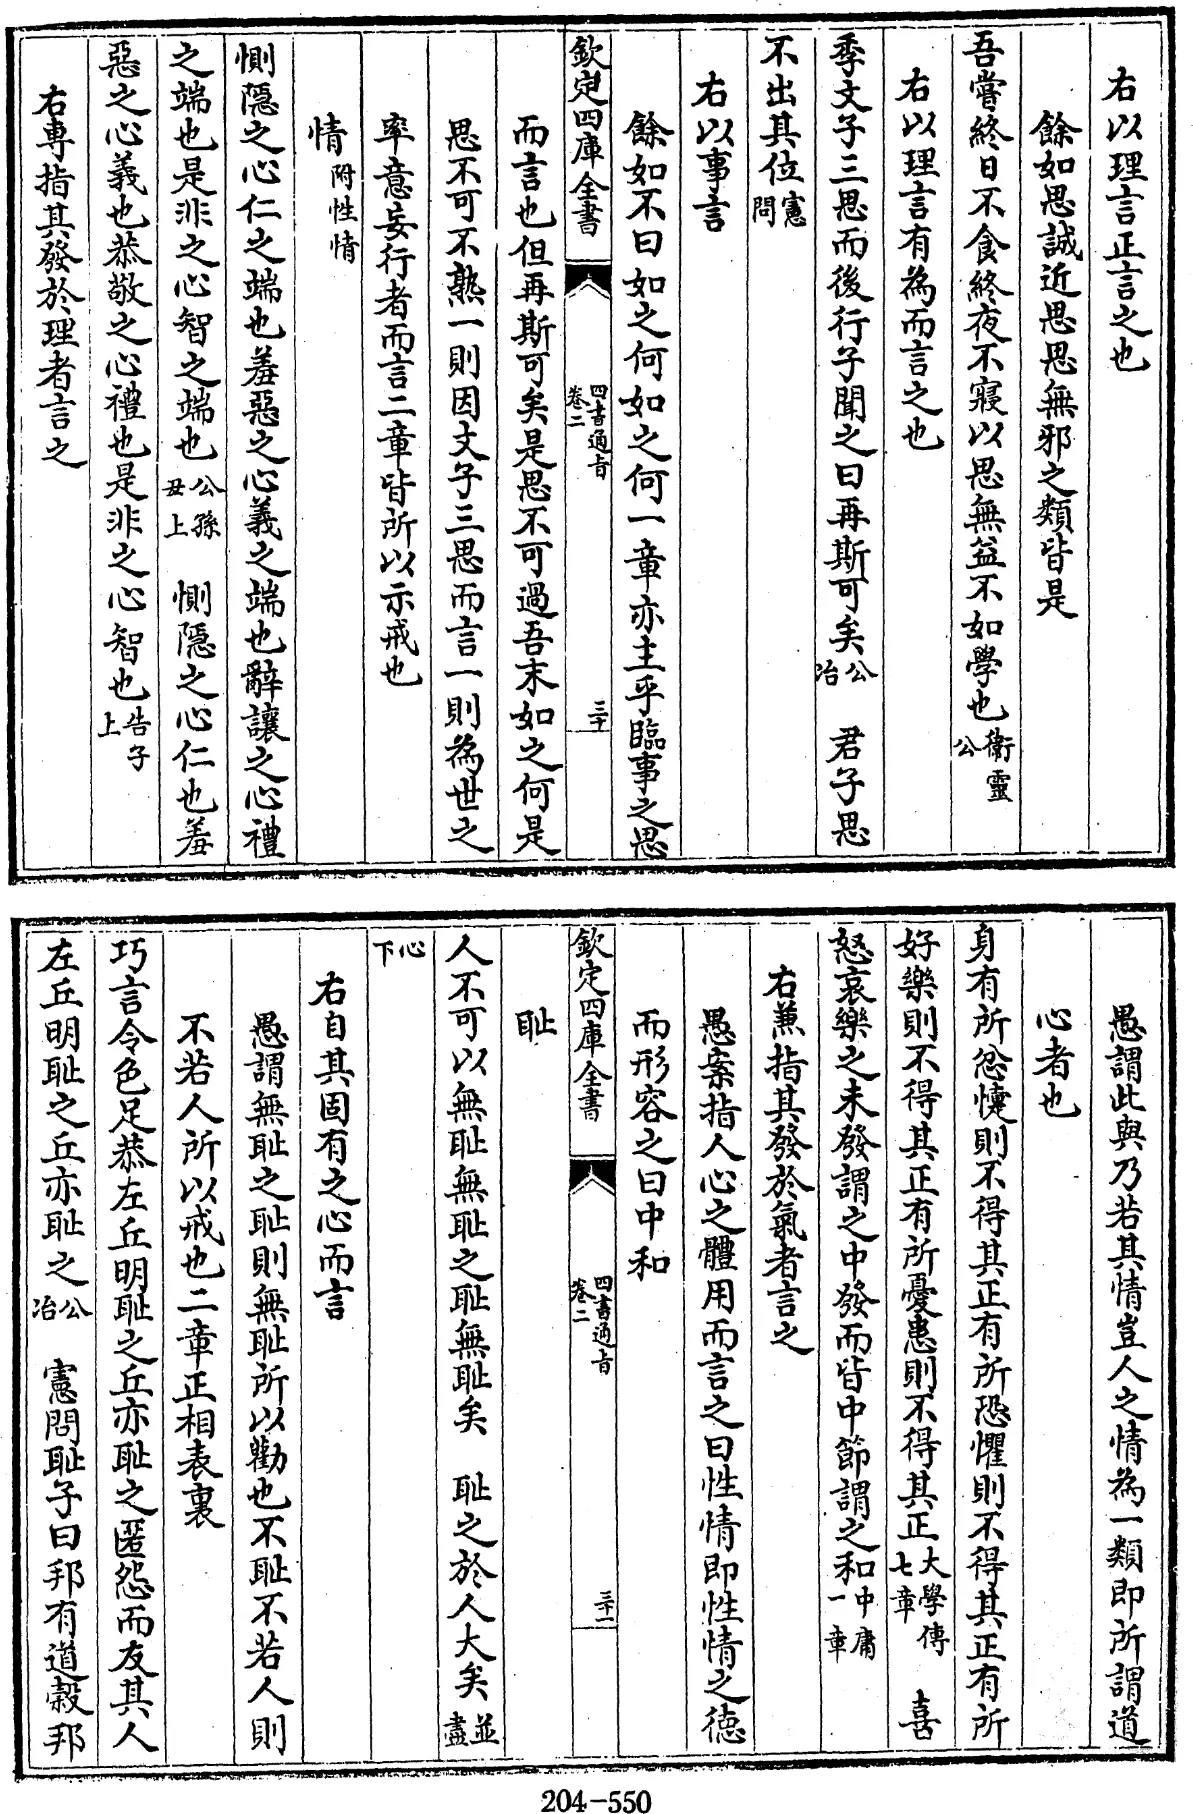 右以理言正言之也
餘如思誠近思思無邪之類皆是
吾嘗終日不食終夜不寢以思無益不如學也衛靈公
右以理言有為而言之也
季文子三思而後行子聞之曰再斯可矣公冶 君子思
不出其位憲問
右以事言
餘如不曰如之何如之何一章亦主乎臨事之思
欽定四庫全書 四書通旨卷二 三十
而言也但再斯可矣是思不可過吾末如之何是
思不可不熟一則因文子三思而言一則為世之
率意妄行者而言二章皆所以示戒也
情附性情
惻隠之心仁之端也羞惡之心義之端也辭讓之心禮
之端也是非之心智之端也公孫丑上 惻隠之心仁也羞
惡之心義也恭敬之心禮也是非之心智也告子上
右專指其發於理者言之
愚謂此與乃若其情豈人之情為一類即所謂道
心者也
身有所忿懥則不得其正有所恐懼則不得其正有所
好樂則不得其正有所憂患則不得其正大學傳七章 喜
怒哀樂之未發謂之中發而皆中節謂之和中庸一章
右兼指其發於氣者言之
愚案指人心之體用而言之曰性情即性情之德
而形容之曰中和
欽定四庫全書 四書通旨卷二 三十一
恥
人不可以無恥無恥之恥無恥矣 恥之於人大矣並盡
心下
右自其固有之心而言
愚謂無恥之恥則無恥所以勸也不恥不若人則
不若人所以戒也二章正相表裏
巧言令色足恭左丘明恥之丘亦恥之匿怨而友其人
左丘明恥之丘亦恥之公冶 憲問恥子曰邦有道穀邦
204-550